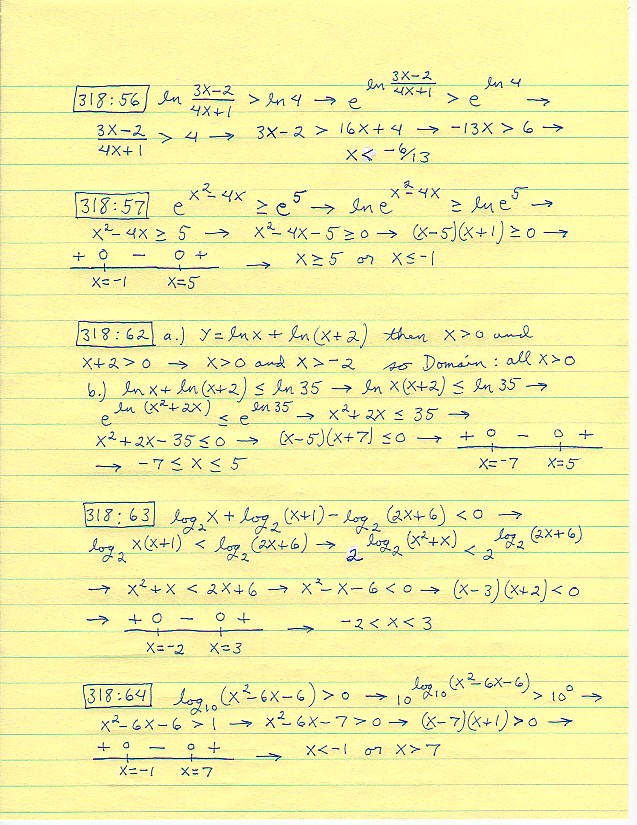 318:56 ln (3X-2)/(4X+1) > ln 4 → e^(ln (3X-2)/(4X+1)) > e^(ln 4) →
(3X-2)/(4X+1) > 4 → 3X-2 > 16X+4 → -13X > 6 →
X < -6/13
318:57 e^(X²-4X) ≥ e^5 → ln e^(X²-4X) ≥ ln e^5 →
X²-4X ≥ 5 → X²-4X-5 ≥ 0 → (X-5)(X+1) ≥ 0 →
+ 0 - 0 + → X ≥ 5 or X ≤ -1
X=-1 X=5
318:62 a.) Y = ln X + ln(X+2) then X>0 and
X+2>0 → X>0 and X>-2 so Domain: all X>0
b.) ln X + ln(X+2) ≤ ln 35 → ln X(X+2) ≤ ln 35 →
e^(ln (X²+2X)) ≤ e^(ln 35) → X²+2X ≤ 35 →
X²+2X-35 ≤ 0 → (X-5)(X+7) ≤ 0 → + 0 - 0 +
→ -7 ≤ X ≤ 5 X=-7 X=5
318:63 log₂ X + log₂ (X+1) - log₂ (2X+6) < 0 →
log₂ X(X+1) < log₂ (2X+6) → 2^(log₂ (X²+X)) < 2^(log₂ (2X+6))
→ X²+X < 2X+6 → X²-X-6 < 0 → (X-3)(X+2) < 0
→ + 0 - 0 + → -2 < X < 3
X=-2 X=3
318:64 log₁₀ (X²-6X-6) > 0 → 10^(log₁₀ (X²-6X-6)) > 10⁰ →
X²-6X-6 > 1 → X²-6X-7 > 0 → (X-7)(X+1) > 0 →
+ 0 - 0 + → X<-1 or X>7
X=-1 X=7